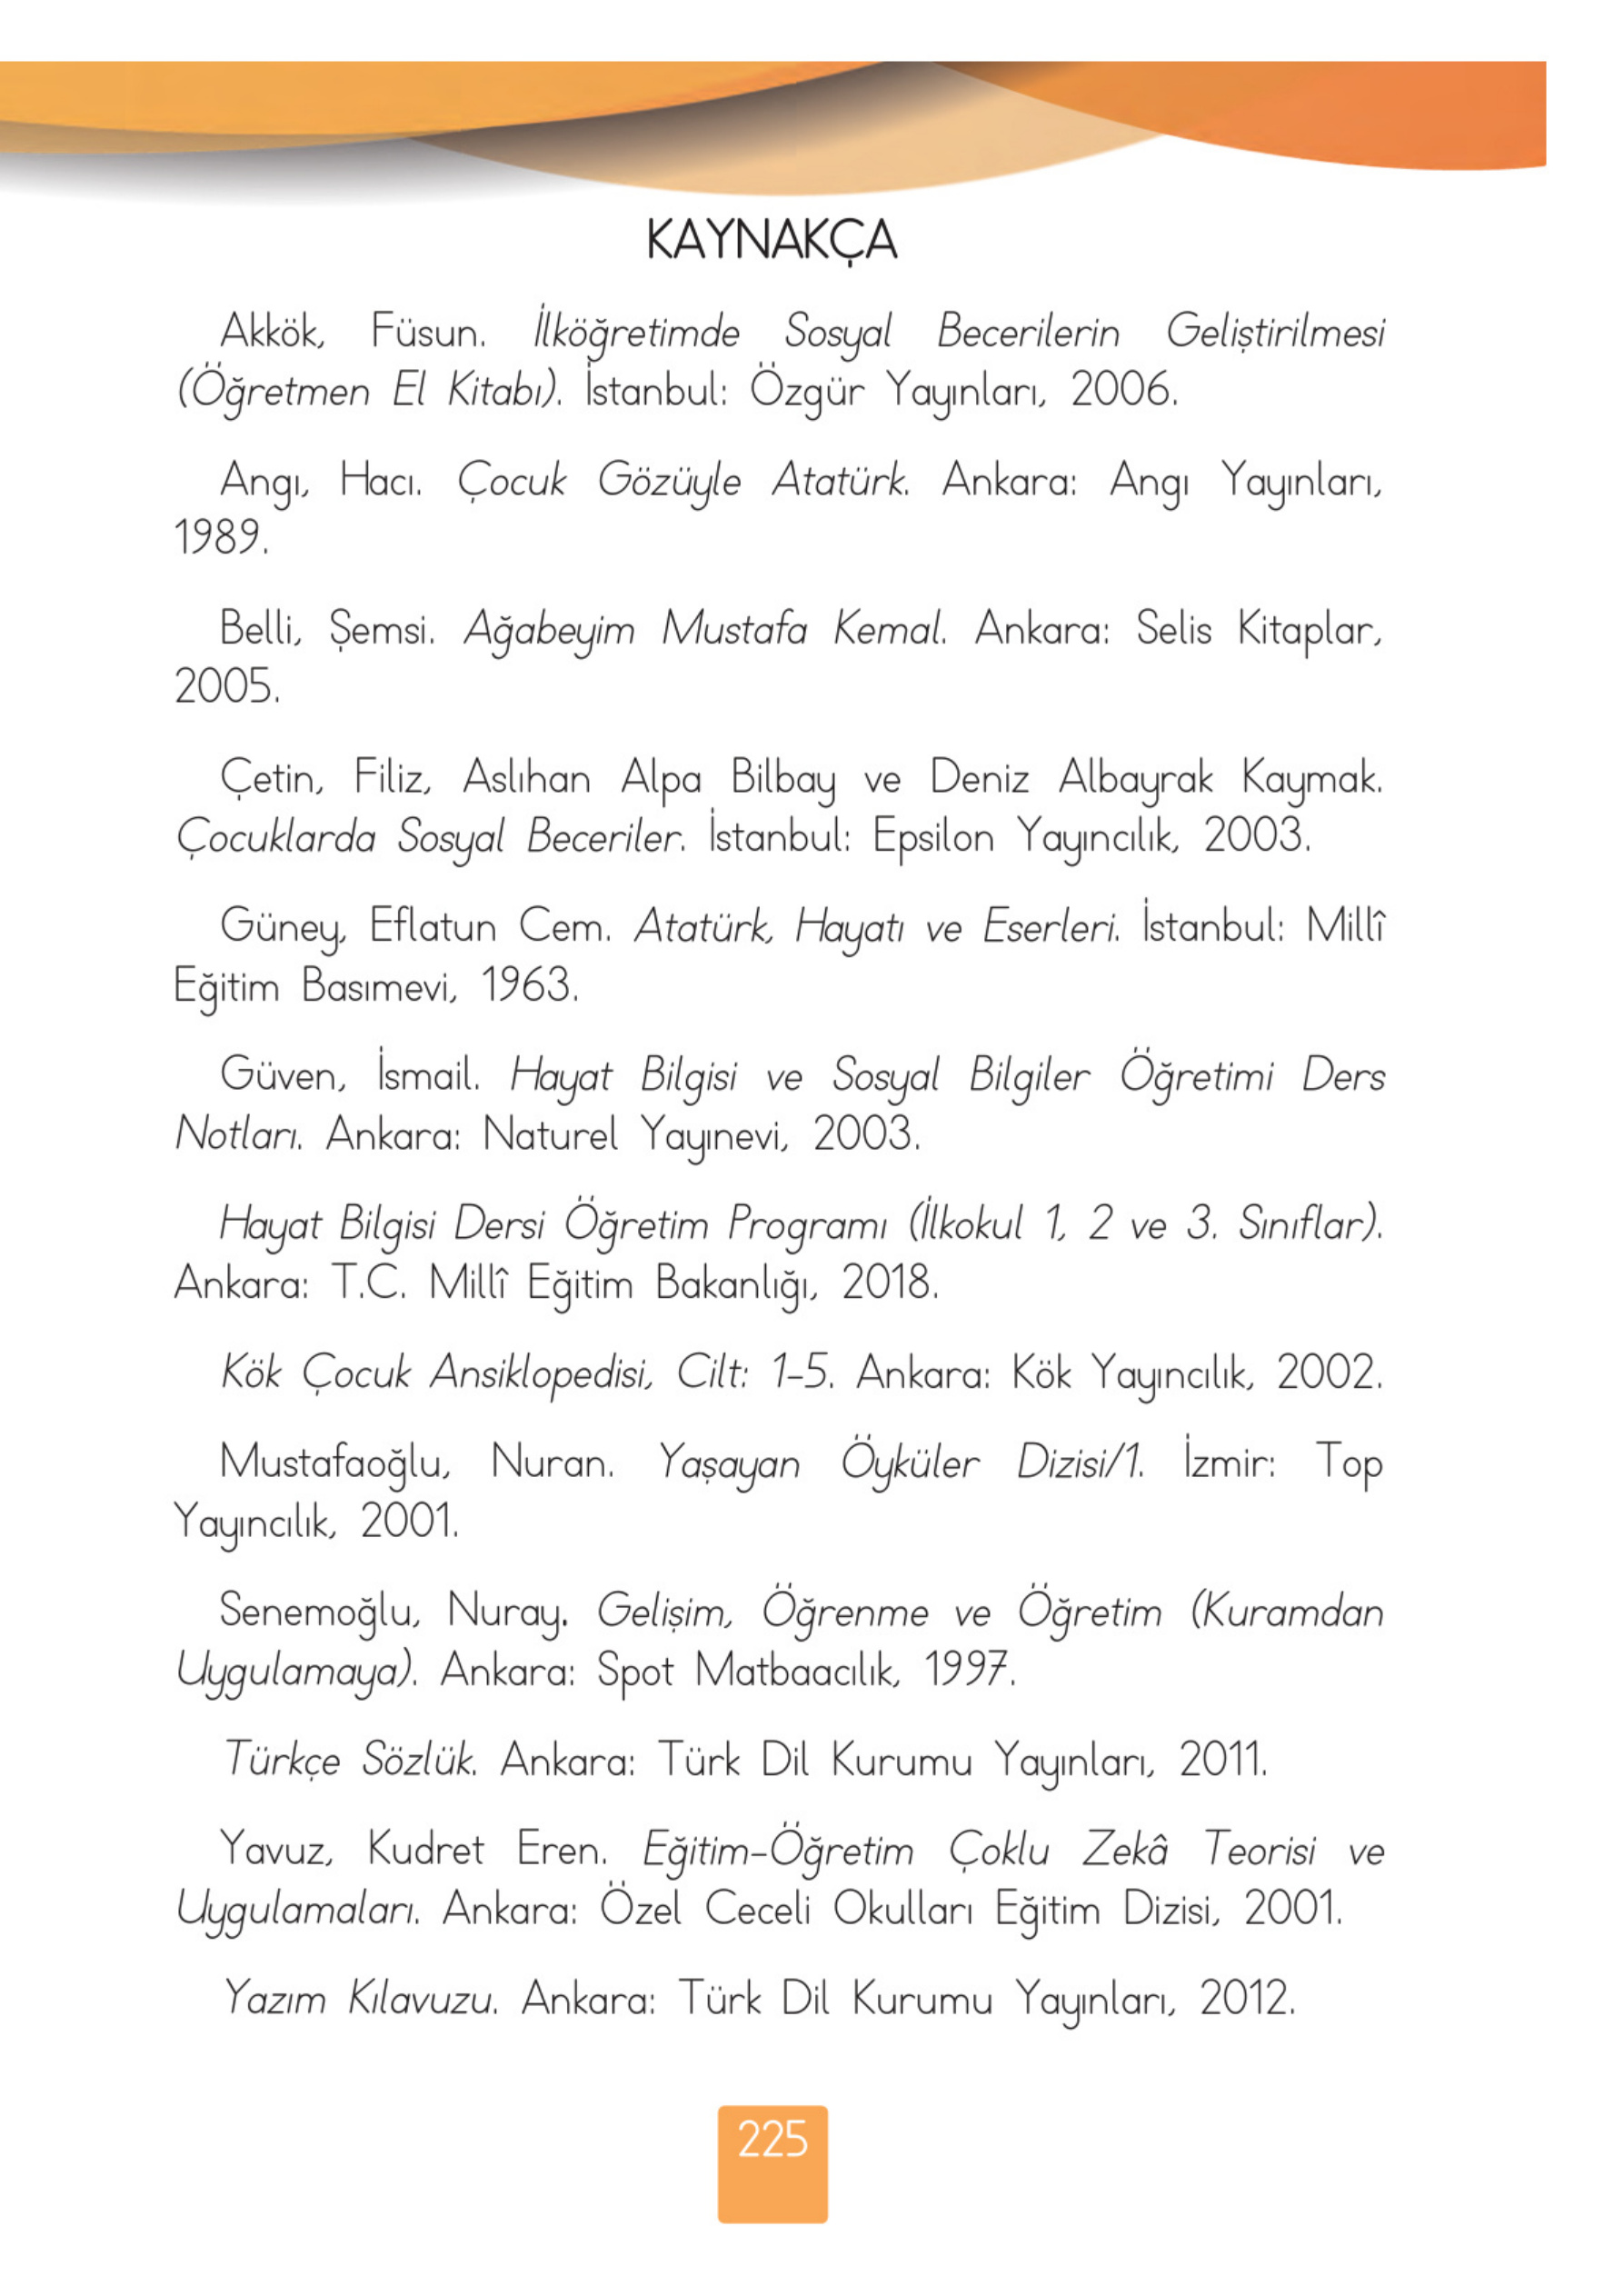 KAYNAKÇA
Akkök, Füsun. İlköğretimde Sosyal Becerilerin Geliştirilmesi
(Öğretmen El Kitabı). İstanbul: Özgür Yayınları, 2006.
Angı, Hacı. Çocuk Gözüyle Atatürk. Ankara: Angı Yayınları,
1989.
Belli, Şemsi. Ağabeyim Mustafa Kemal. Ankara: Selis Kitaplar,
2005.
Çetin, Filiz, Aslıhan Alpa Bilbay ve Deniz Albayrak Kaymak.
Çocuklarda Sosyal Beceriler. İstanbul: Epsilon Yayıncılık, 2003.
Güney, Eflatun Cem. Atatürk, Hayatı ve Eserleri. İstanbul: Millî
Eğitim Basımevi, 1963.
Güven, İsmail. Hayat Bilgisi ve Sosyal Bilgiler Öğretimi Ders
Notları. Ankara: Naturel Yayınevi, 2003.
Hayat Bilgisi Dersi Öğretim Programı (İlkokul 1, 2 ve 3. Sınıflar).
Ankara: T.C. Millî Eğitim Bakanlığı, 2018.
Kök Çocuk Ansiklopedisi, Cilt: 1-5. Ankara: Kök Yayıncılık, 2002.
Mustafaoğlu, Nuran. Yaşayan Öyküler Dizisi/1. İzmir: Top
Yayıncılık, 2001.
Senemoğlu, Nuray. Gelişim, Öğrenme ve Öğretim (Kuramdan
Uygulamaya). Ankara: Spot Matbaacılık, 1997.
Türkçe Sözlük. Ankara: Türk Dil Kurumu Yayınları, 2011.
Yavuz, Kudret Eren. Eğitim-Öğretim Çoklu Zekâ Teorisi ve
Uygulamaları. Ankara: Özel Ceceli Okulları Eğitim Dizisi, 2001.
Yazım Kılavuzu. Ankara: Türk Dil Kurumu Yayınları, 2012.
225